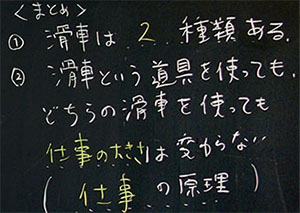 <まとめ>
① 滑車は 2 種類ある.
② 滑車という道具を使っても,
どちらの滑車を使っても
仕事の大きさは変からない
( 仕事 の原理 )